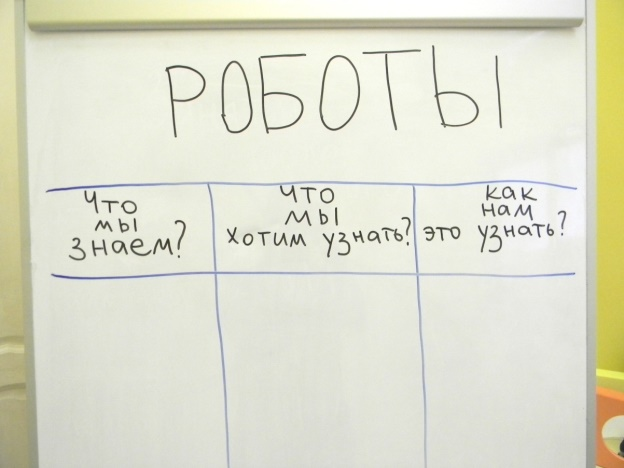 РОБОТЫ
Что
мы
знаем?
Что
мы
хотим узнать?
как
нам
это узнать?